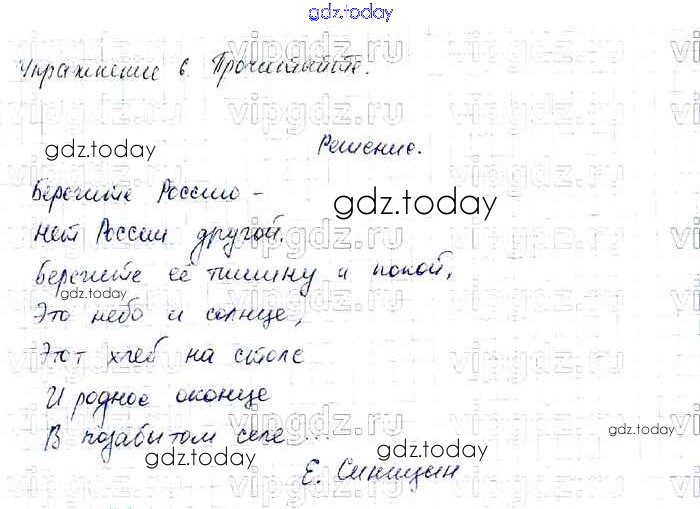 gdz.today
Упражнение 6 Прочитайте.
Решение.
Берегите Россию -
Нет России другой.
Берегите её тишину и покой,
Это небо и солнце,
Этот хлеб на столе
И родное оконце
В позабытом селе ...
Е. Синицын
vipgdz.ru
gdz.today
gdz.today
gdz.today
gdz.today
gdz.today